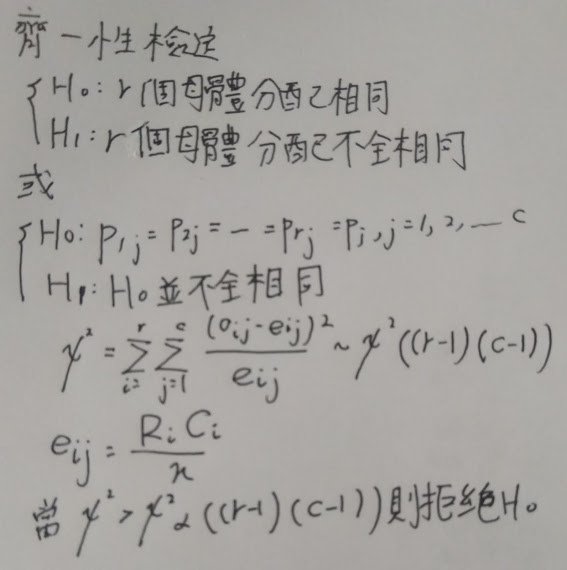 齊一性檢定
{ H₀: r個母體分配相同
H₁: r個母體分配不全相同
或
{ H₀: p₁ⱼ = p₂ⱼ = … = pᵣⱼ = pⱼ, j=1, 2, … c
H₁: H₀並不全相同
χ² = Σᵢ₌ʳ Σⱼ₌₁ᶜ (oᵢⱼ - eᵢⱼ)² / eᵢⱼ ~ χ²((r-1)(c-1))
eᵢⱼ = Rᵢ Cᵢ / n
當 χ² > χ²α((r-1)(c-1))則拒絕H₀